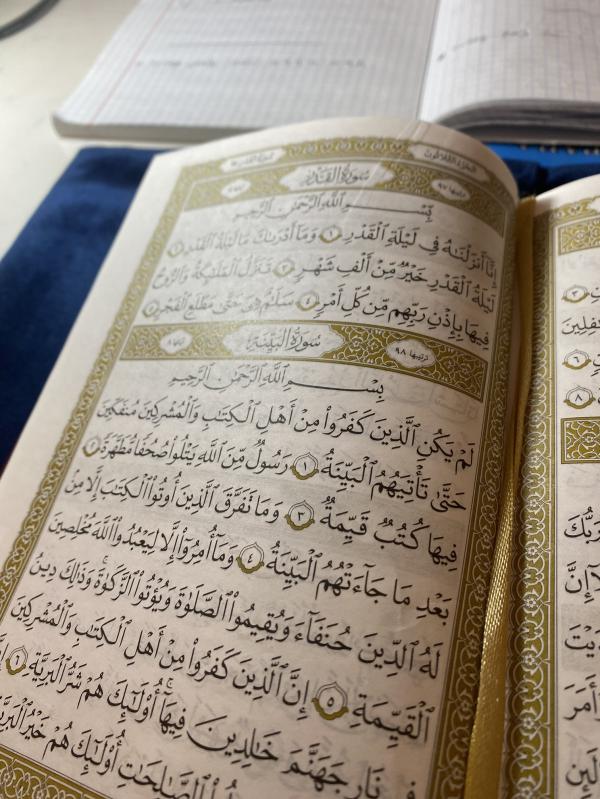 الجزء الثلاثون
سورة القدر
ترتيبها ٩٧
سُورَةُ القَدْرِ
آياتها ٥
بِسْمِ ٱللَّهِ ٱلرَّحْمَٰنِ ٱلرَّحِيمِ
إِنَّآ أَنزَلْنَٰهُ فِى لَيْلَةِ ٱلْقَدْرِ ١ وَمَآ أَدْرَىٰكَ مَا لَيْلَةُ ٱلْقَدْرِ ٢
لَيْلَةُ ٱلْقَدْرِ خَيْرٌ مِّنْ أَلْفِ شَهْرٍ ٣ تَنَزَّلُ ٱلْمَلَٰٓئِكَةُ وَٱلرُّوحُ
فِيهَا بِإِذْنِ رَبِّهِم مِّن كُلِّ أَمْرٍ ٤ سَلَٰمٌ هِىَ حَتَّىٰ مَطْلَعِ ٱلْفَجْرِ ٥
ترتيبها ٩٨
سُورَةُ البَيِّنَةِ
آياتها ٨
بِسْمِ ٱللَّهِ ٱلرَّحْمَٰنِ ٱلرَّحِيمِ
لَمْ يَكُنِ ٱلَّذِينَ كَفَرُوا۟ مِنْ أَهْلِ ٱلْكِتَٰبِ وَٱلْمُشْرِكِينَ مُنفَكِّينَ
حَتَّىٰ تَأْتِيَهُمُ ٱلْبَيِّنَةُ ١ رَسُولٌ مِّنَ ٱللَّهِ يَتْلُوا۟ صُحُفًا مُّطَهَّرَةً ٢
فِيهَا كُتُبٌ قَيِّمَةٌ ٣ وَمَا تَفَرَّقَ ٱلَّذِينَ أُوتُوا۟ ٱلْكِتَٰبَ إِلَّا مِنۢ
بَعْدِ مَا جَآءَتْهُمُ ٱلْبَيِّنَةُ ٤ وَمَآ أُمِرُوٓا۟ إِلَّا لِيَعْبُدُوا۟ ٱللَّهَ مُخْلِصِينَ
لَهُ ٱلدِّينَ حُنَفَآءَ وَيُقِيمُوا۟ ٱلصَّلَوٰةَ وَيُؤْتُوا۟ ٱلزَّكَوٰةَ وَذَٰلِكَ دِينُ
ٱلْقَيِّمَةِ ٥ إِنَّ ٱلَّذِينَ كَفَرُوا۟ مِنْ أَهْلِ ٱلْكِتَٰبِ وَٱلْمُشْرِكِينَ
فِى نَارِ جَهَنَّمَ خَٰلِدِينَ فِيهَآ أُو۟لَٰٓئِكَ هُمْ شَرُّ ٱلْبَرِيَّةِ ٦
ٱلصَّٰلِحَٰتِ أُو۟لَٰٓئِكَ هُمْ خَيْرُ ٱلْبَرِيَّةِ